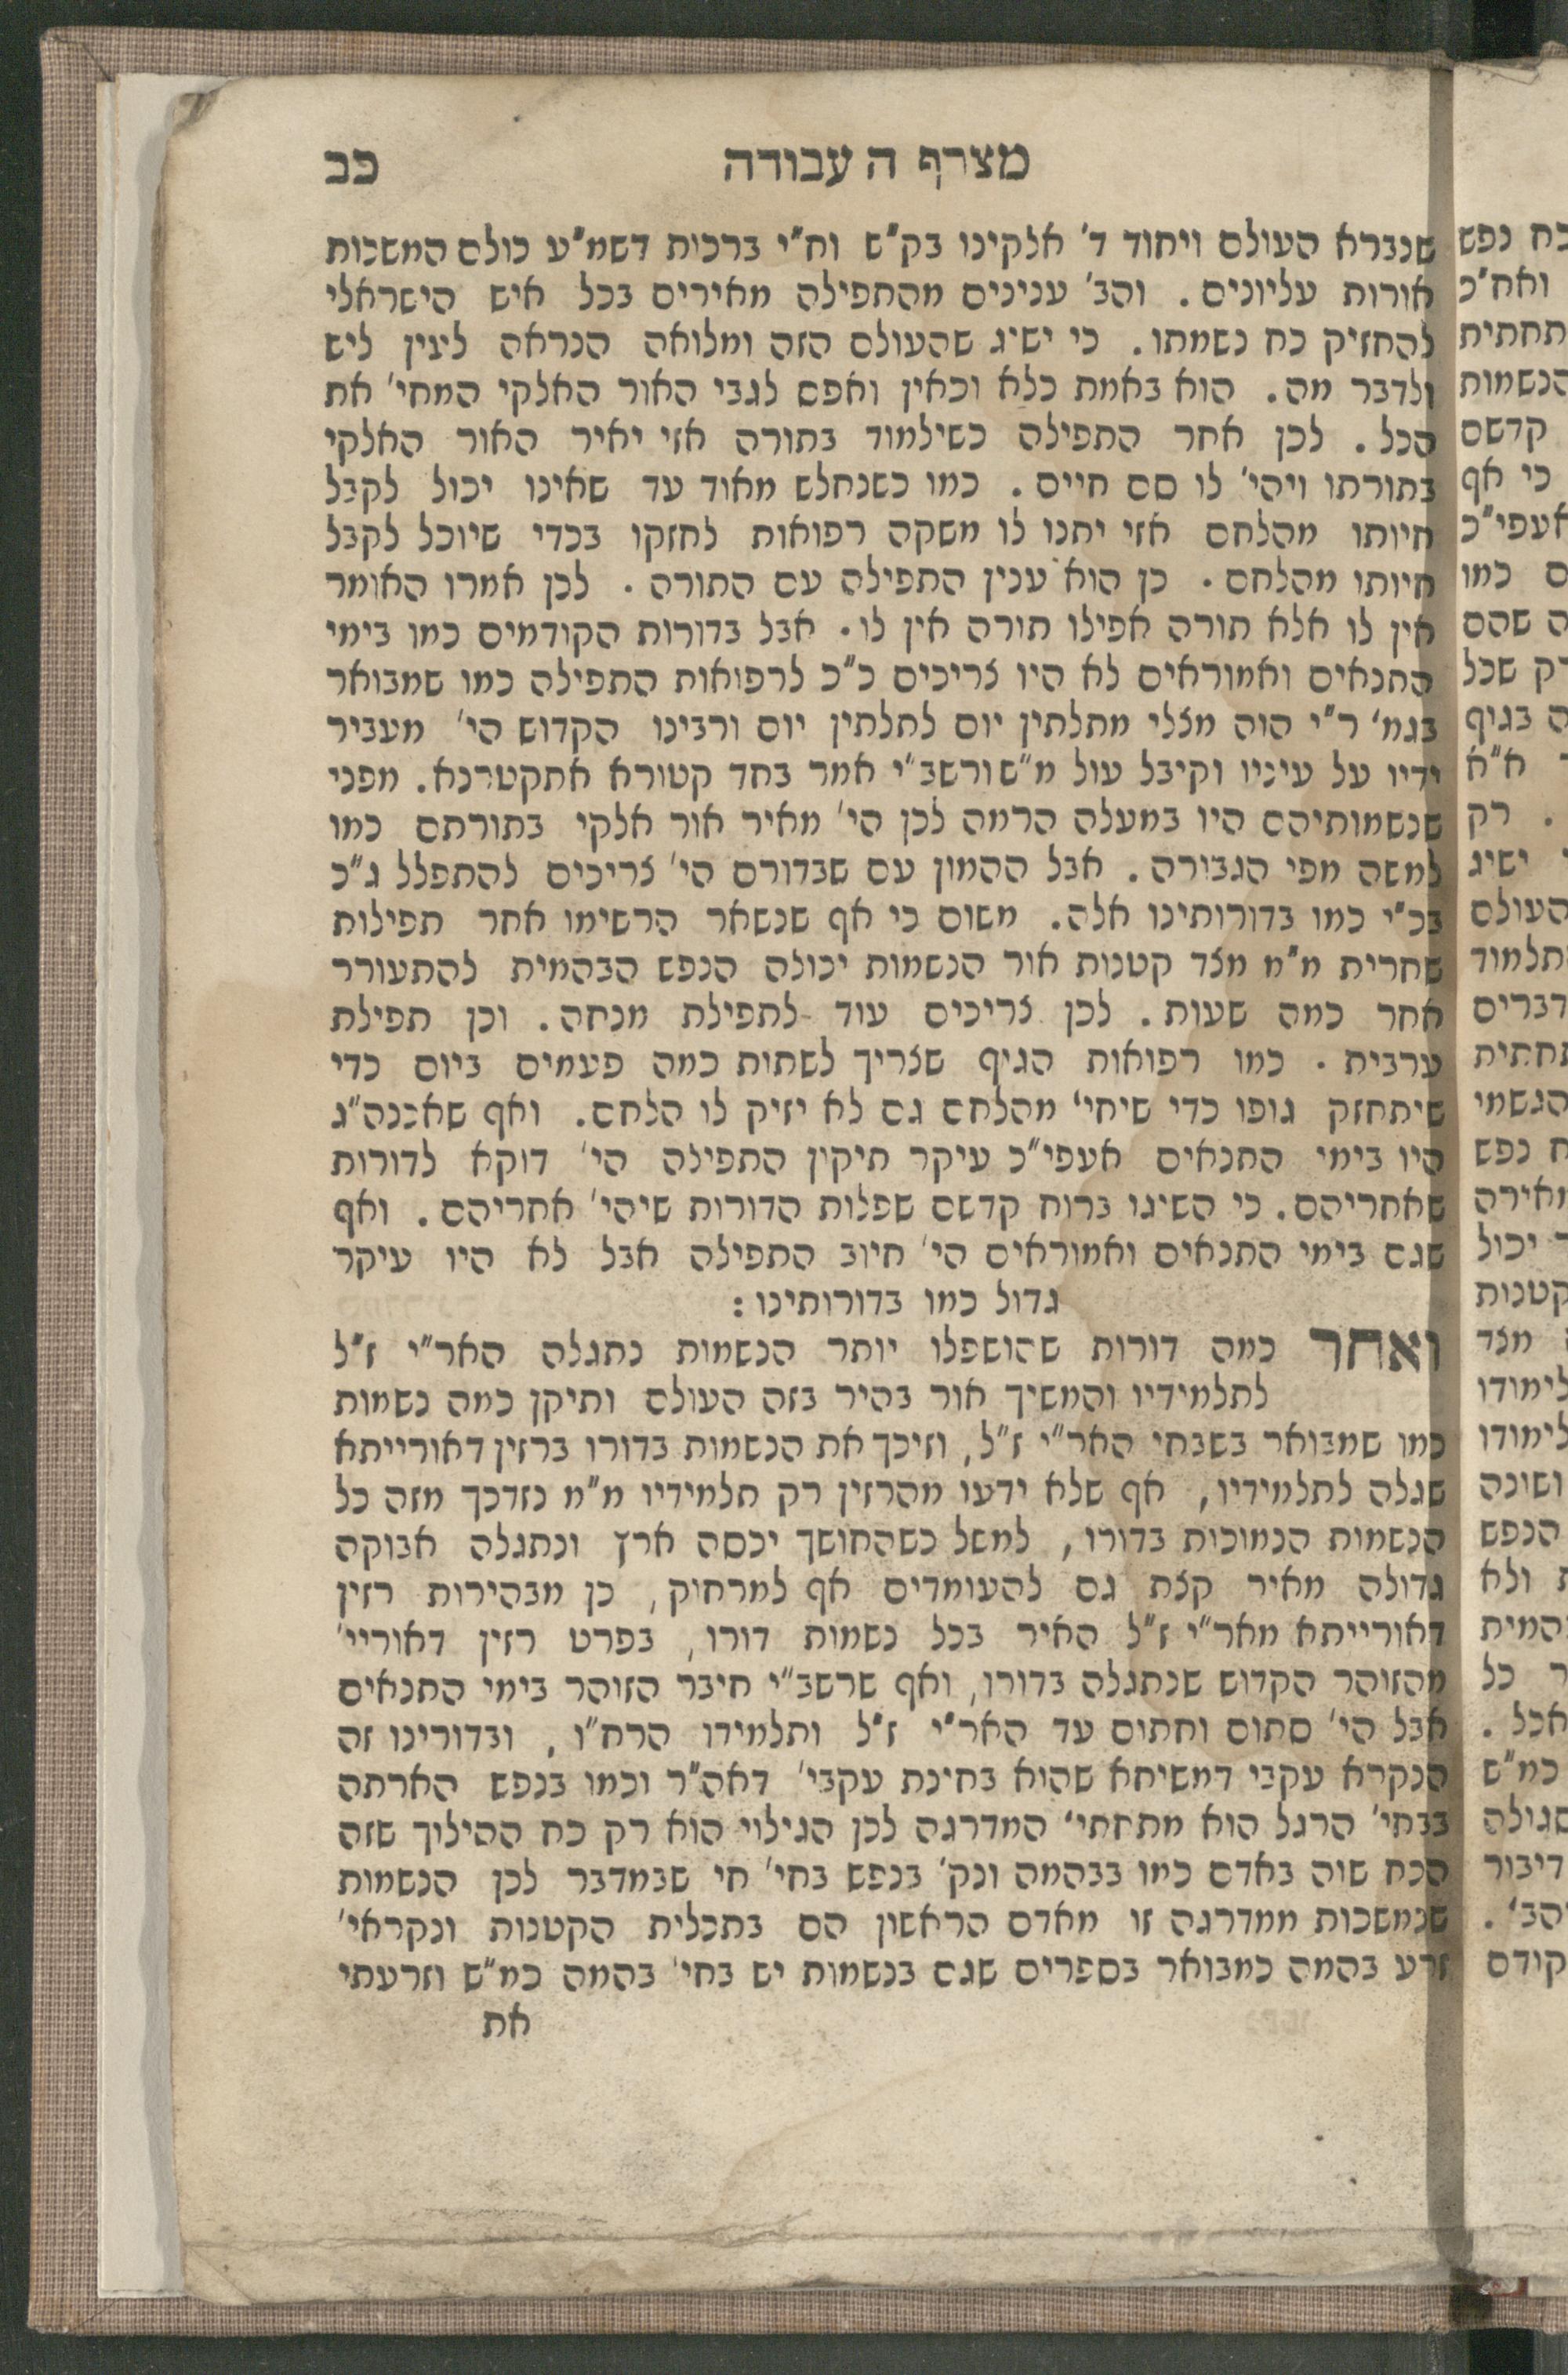 מצרף ה עבודה
כב
שנברא העולם ויחוד ד' אלקינו בק"ש וח"י ברכות דשמ"ע כולם המשכות
אורות עליונים. והב' ענינים מהתפילה מאירים בכל איש הישראלי
להחזיק כח נשמתו. כי ישיג שהעולם הזה ומלואה הנראה לעין ליש
ולדבר מה. הוא באמת כלא וכאין ואפס לגבי האור האלקי המחי' את
הכל. לכן אחר התפילה כשילמוד בתורה אזי יאיר האור האלקי
בתורתו ויהי' לו סם חיים. כמו כשנחלש מאוד עד שאינו יכול לקבל
חיותו מהלחם אזי יתנו לו משקה רפואות לחזקו בכדי שיוכל לקבל
חיותו מהלחם. כן הוא ענין התפילה עם התורה. לכן אמרו האומר
אין לו אלא תורה אפילו תורה אין לו. אבל בדורות הקודמים כמו בימי
התנאים ואמוראים לא היו צריכים כ"כ לרפואות התפילה כמו שמבואר
בגמ' ר"י הוה מצלי מתלתין יום לתלתין יום ורבינו הקדוש הי' מעביר
ידיו על עיניו וקיבל עול מ"ש ורשב"י אמר בחד קטורא אתקטרנא. מפני
שנשמותיהם היו במעלה הרמה לכן הי' מאיר אור אלקי בתורתם כמו
למשה מפי הגבורה. אבל ההמון עם שבדורם הי' צריכים להתפלל ג"כ
בכ"י כמו בדורותינו אלה. משום כי אף שנשאר הרשימו אחר תפילות
שחרית מ"מ מצד קטנות אור הנשמות יכולה הנפש הבהמית להתעורר
אחר כמה שעות. לכן צריכים עוד לתפילת מנחה. וכן תפילת
ערבית. כמו רפואות הגיף שצריך לשתות כמה פעמים ביום כדי
שיתחזק גופו כדי שיחי' מהלחם גם לא יזיק לו הלחם. ואף שאכנה"ג
היו בימי התנאים אעפי"כ עיקר תיקין התפילה הי' דוקא לדורות
שאחריהם. כי השיגו ברוח קדשם שפלות הדורות שיהי' אחריהם. ואף
שגם בימי התנאים ואמוראים הי' חיוב התפילה אבל לא היו עיקר
גדול כמו בדורותינו:
ואחר כמה דורות שהושפלו יותר הנשמות נתגלה האר"י ז"ל
לתלמידיו והמשיך אור בהיר בזה העולם ותיקן כמה נשמות
כמו שמבואר בשבחי האר"י ז"ל, וזיכך את הנשמות בדורו ברזין דאורייתא
שגלה לתלמידיו, אף שלא ידעו מהרזין רק תלמידיו מ"מ נזדכך מזה כל
הנשמות הנמוכות בדורו, למשל כשהחושך יכסה ארץ ונתגלה אבוקה
גדולה מאיר קצת גם להעומדים אף למרחוק, כן מבהירות רזין
דאורייתא מאר"י ז"ל האיר בכל נשמות דורו, בפרט רזין דאוריי'
מהזוהר הקדוש שנתגלה בדורו, ואף שרשב"י חיבר הזוהר בימי התנאים
אבל הי' סתום וחתום עד האר"י ז"ל ותלמידו הרח"ו, ובדורינו זה
הנקרא עקבי דמשיחא שהוא בחינת עקבי' דאה"ר וכמו בנפש הארתה
בבחי' הרגל הוא מתחתי' המדרגה לכן הגילוי הוא רק כח ההילוך שזה
הכח שוה באדם כמו בבהמה ונק' בנפש בחי' חי שבמדבר לכן הנשמות
שנמשכות ממדרגה זו מאדם הראשון הם בתכלית הקטנות ונקראי'
זרע בהמה כמבואר בספרים שגם בנשמות יש בחי' בהמה כמ"ש וזרעתי
את
כח נפש
ואח"כ
תחתית
הנשמות
קדשם
כי אף
אעפי"כ
כמו
שהם
רק שכל
בגיף
א"א
רק
ישיג
העולם
דברים
תחתית
הגשמי
נפש
מאירה
יכול
קטנות
מצד
לימודו
לימודו
ושונה
הנפש
ולא
כל
כמ"ש
דיבור
קודם